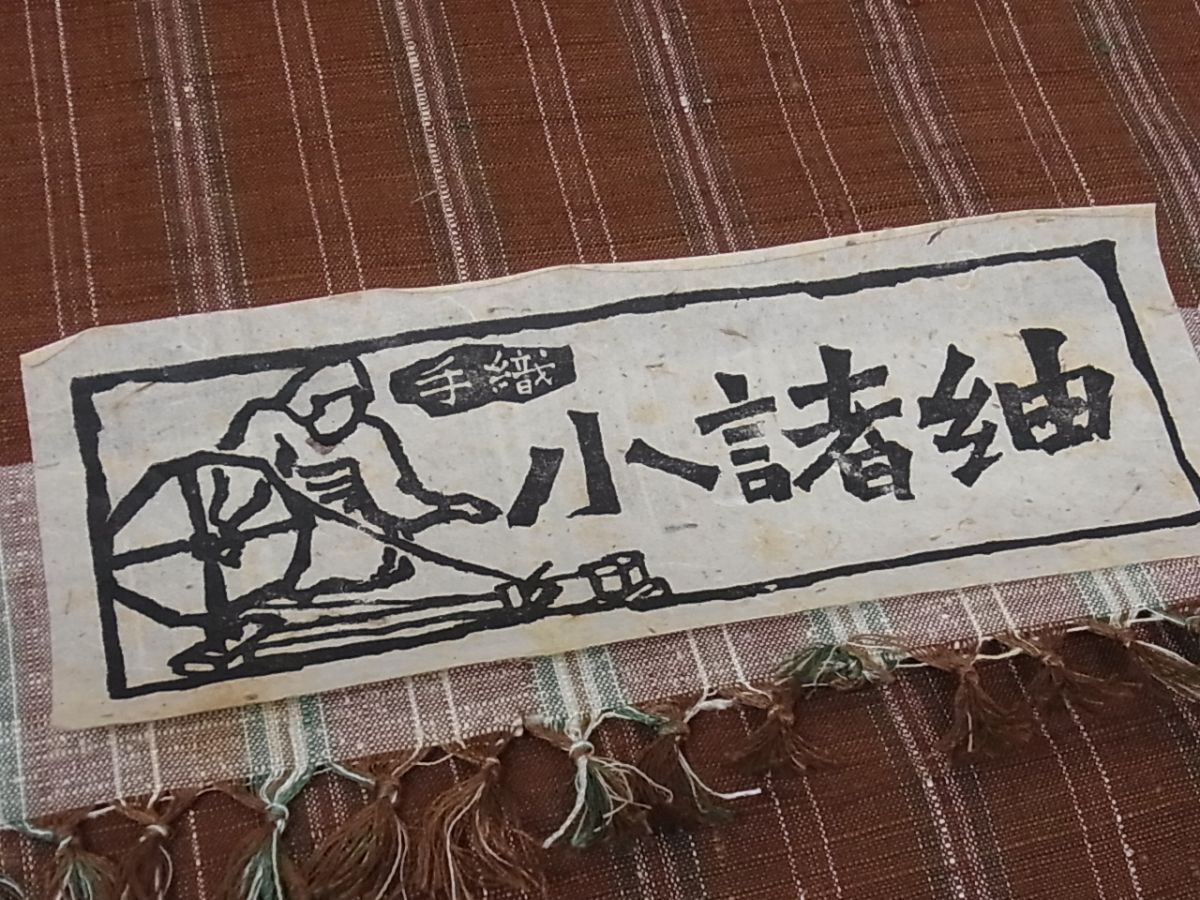 手織
小諸紬